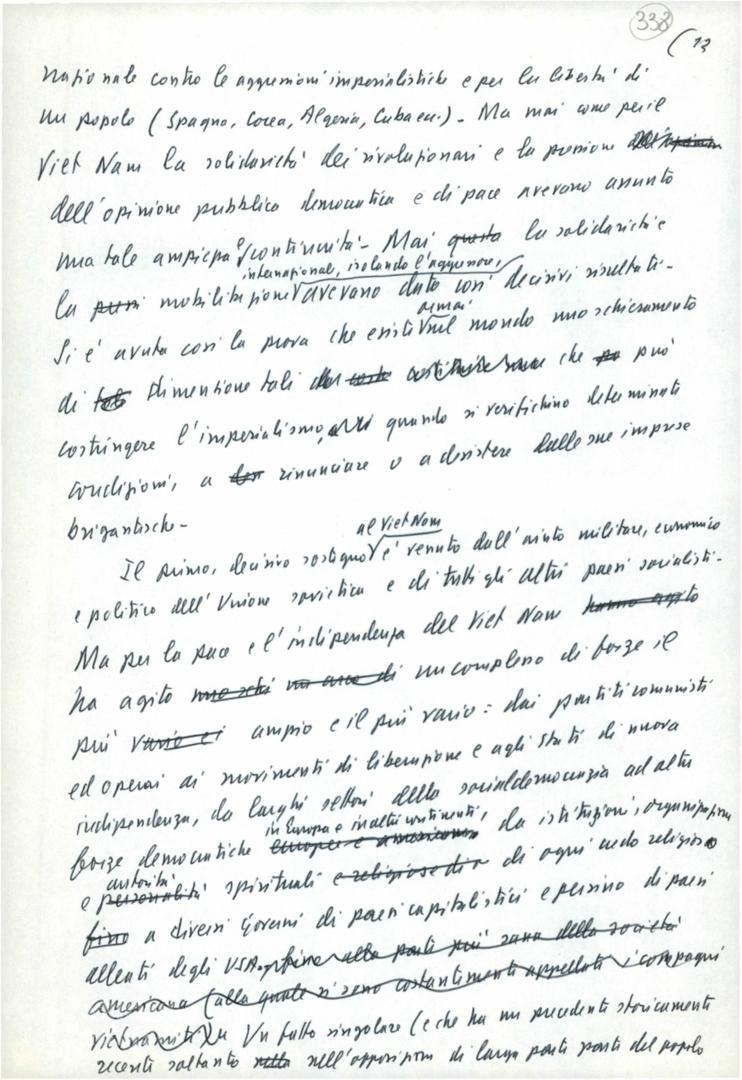 338
(13
nazionale contro le aggressioni imperialistiche e per la libertà di
un popolo (Spagna, Corea, Algeria, Cuba ecc.) - Ma mai come per il
Viet Nam la solidarietà dei rivoluzionari e la pressione
dell'opinione pubblica democratica e di pace avevano assunto
una tale ampiezza e continuità - Mai questa la solidarietà e
internazionale, isolando l'aggressore,
la mobilitazione avevano dato così decisivi risultati -
ormai
Si è avuta così la prova che esiste nel mondo uno schieramento
di tale dimensione tali che può
costringere l'imperialismo, quando si verifichino determinate
condizioni, a rinunciare o a desistere dalle sue imprese
brigantesche -
al Viet Nam
Il primo, decisivo sostegno è venuto dall'aiuto militare, economico
e politico dell'Unione sovietica e di tutti gli altri paesi socialisti -
Ma per la pace e l'indipendenza del Viet Nam hanno agito
ha agito un arco di un complesso di forze il
più vario e i ampio e il più vario: dai partiti comunisti
ed operai ai movimenti di liberazione e agli Stati di nuova
indipendenza, da larghi settori della socialdemocrazia ad altre
in Europa e in altri continenti,
forze democratiche europee e americane da istituzioni, organizzazioni
autorità
e personalità spirituali e religiose di di ogni credo religioso
fino a diversi Governi di paesi capitalistici e persino di paesi
alleati degli USA. fino alla parte più sana della società
americana (alla quale si sono costantemente appellati i compagni
vietnamiti) Un fatto singolare (e che ha un precedente storicamente
recente soltanto nell'opposizione di larga parte del popolo